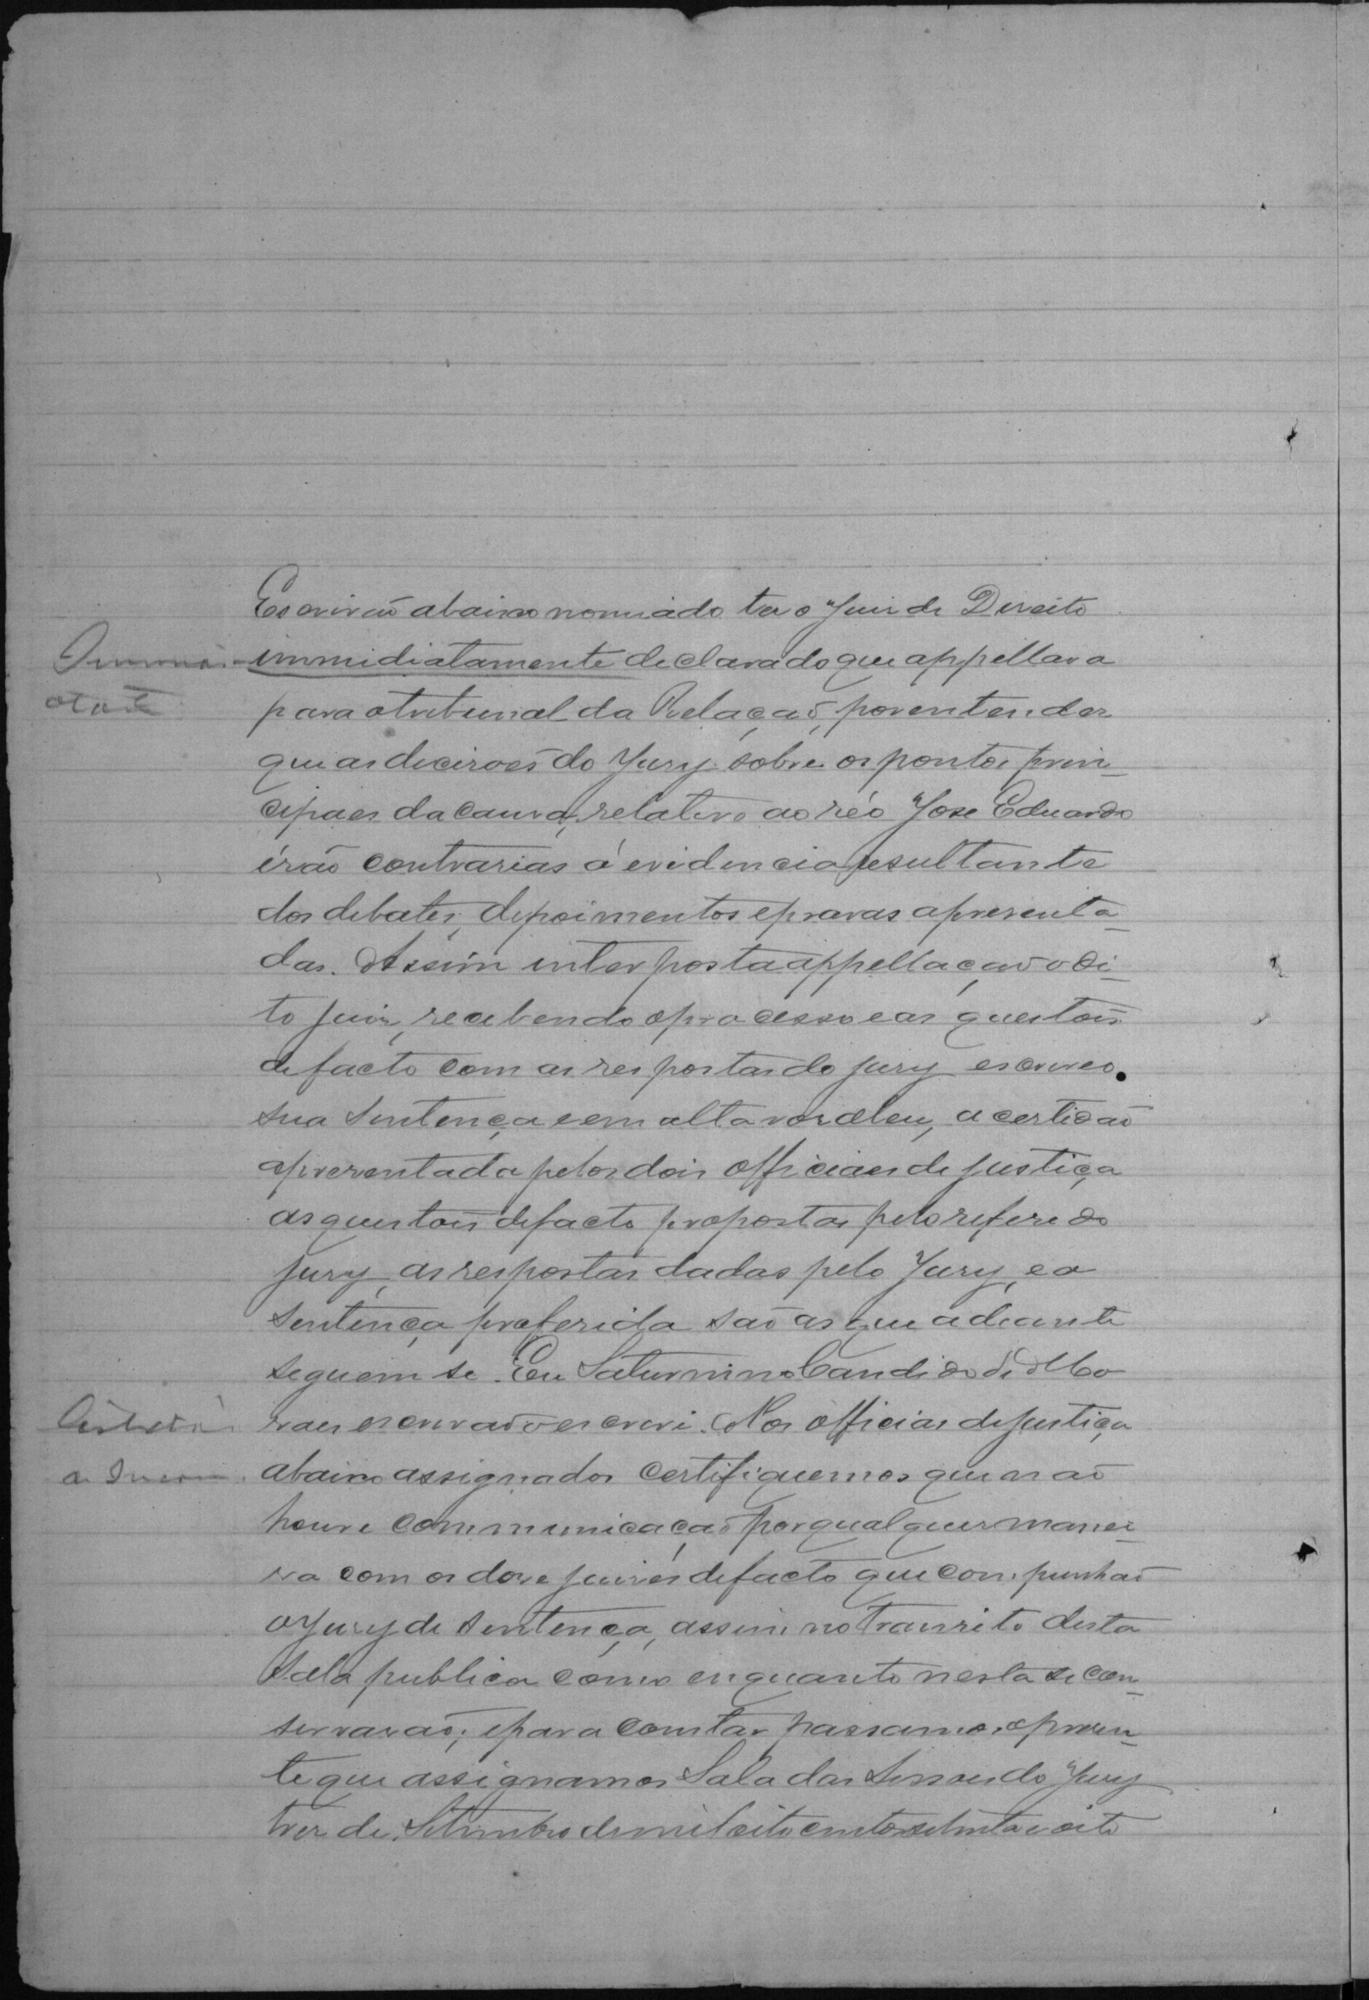 Escrivão abaixo nomiado ter o Juiz de Direito
immidiatamente declarado que appellava
para o tribunal da Relação, por entender
que as decisões do Jury sobre os pontos prin-
cipaes da causa, relativo ao réo José Eduardo
érão contrarias á evidencia resultante
dos debates, depoimentos e provas apresenta-
das. Assim interposta appellação o di-
to juiz, recebendo o processo e as questões
de facto com as respostas do jury escreveo
sua sentença e em alta voz a leu, a certidão
apresentada pelos dois officiaes de justiça
as questões de facto propostas pelo referido
jury, as respostas dadas pelo Jury, e a
sentença proferida são as que adeante
seguem se. Eu Saturnino Candido de Mo
raes escrivão o escrevi. Nos officiaes de justiça
abaixo assignados certifiquemos que não
houve communicação por qualquer manei-
ra com os doze juizes de facto que compunhão
o Jury de sentença, assim no transito desta
sala publica como enquanto nesta se con-
servarão; e para constar passamos o presen-
te que assignamos Sala das Sessoes do Jury
tres de Setembro de mil oito centos setenta e oito